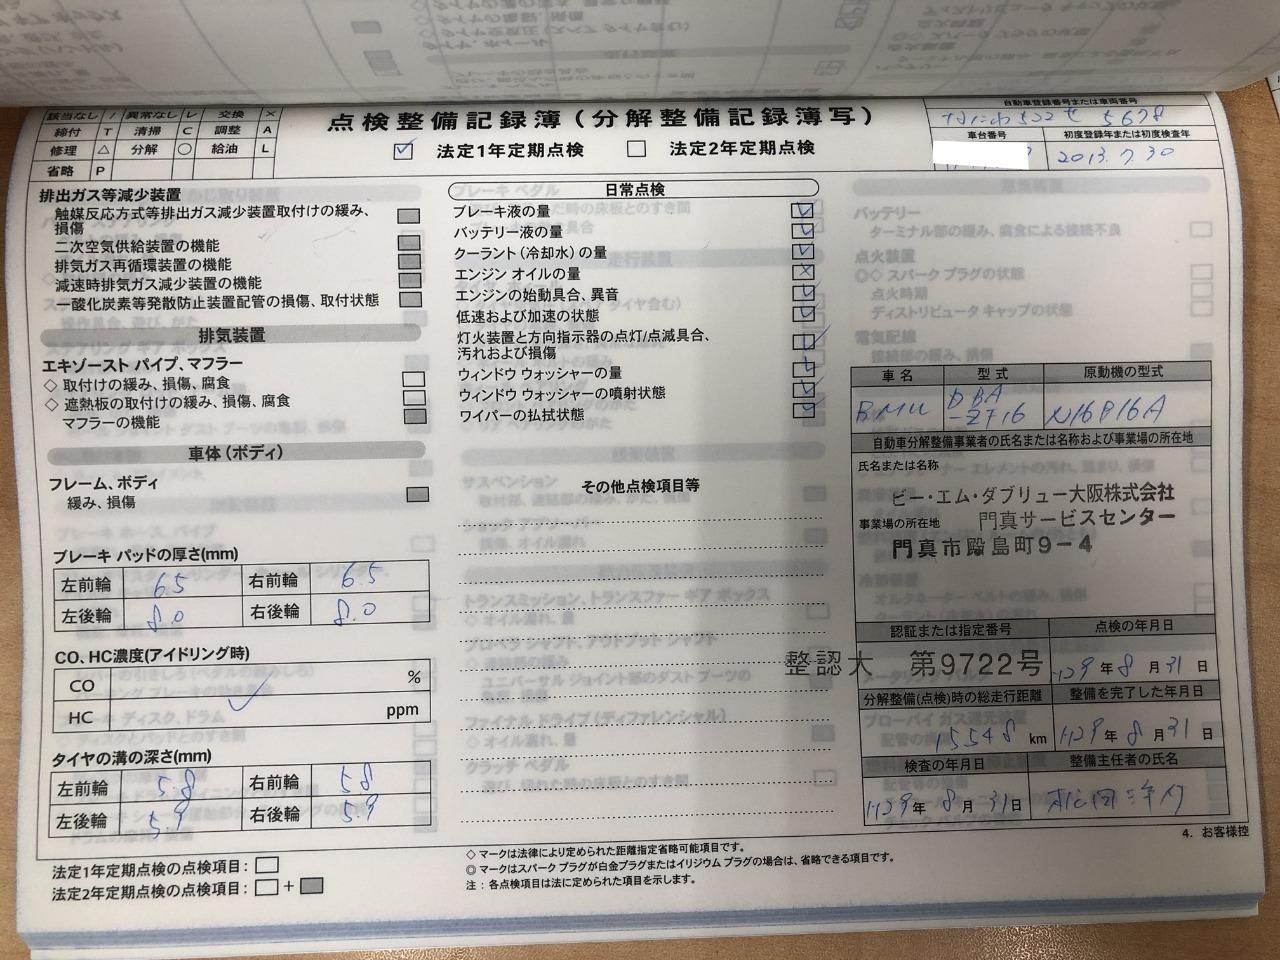 該当なし / 異常なし レ 交換 ×
締付 T 清掃 C 調整 A
修理 △ 分解 ○ 給油 L
省略 P
点検整備記録簿(分解整備記録簿写)
法定1年定期点検 法定2年定期点検
自動車登録番号または車両番号
なにわ 502 せ 5678
車台番号 初度登録年または初度検査年
2013.7.30
排出ガス等減少装置
触媒反応方式等排出ガス減少装置取付けの緩み、
損傷
二次空気供給装置の機能
排気ガス再循環装置の機能
減速時排気ガス減少装置の機能
一酸化炭素等発散防止装置配管の損傷、取付状態
排気装置
エキゾースト パイプ、マフラー
◇ 取付けの緩み、損傷、腐食
◇ 遮熱板の取付けの緩み、損傷、腐食
マフラーの機能
車体(ボディ)
フレーム、ボディ
緩み、損傷
ブレーキ パッドの厚さ(mm)
左前輪 6.5 右前輪 6.5
左後輪 8.0 右後輪 8.0
CO、HC濃度(アイドリング時)
CO %
HC ppm
タイヤの溝の深さ(mm)
左前輪 5.8 右前輪 5.8
左後輪 5.9 右後輪 5.9
法定1年定期点検の点検項目:
法定2年定期点検の点検項目: +
日常点検
ブレーキ液の量
バッテリー液の量
クーラント(冷却水)の量
エンジン オイルの量
エンジンの始動具合、異音
低速および加速の状態
灯火装置と方向指示器の点灯/点滅具合、
汚れおよび損傷
ウィンドウ ウォッシャーの量
ウィンドウ ウォッシャーの噴射状態
ワイパーの払拭状態
その他点検項目等
◇ マークは法律により定められた距離指定省略可能項目です。
◎ マークはスパーク プラグが白金プラグまたはイリジウム プラグの場合は、省略できる項目です。
注：各点検項目は法に定められた項目を示します。
車名 型式 原動機の型式
BMW DBA
-2F16 N16B16A
自動車分解整備事業者の氏名または名称および事業場の所在地
氏名または名称
ビー・エム・ダブリュー大阪株式会社
事業場の所在地 門真サービスセンター
門真市殿島町9-4
認証または指定番号 点検の年月日
整認大 第9722号 H29年8月31日
分解整備(点検)時の総走行距離 整備を完了した年月日
15548 km H29年8月31日
検査の年月日 整備主任者の氏名
H29年8月31日
4. お客様控